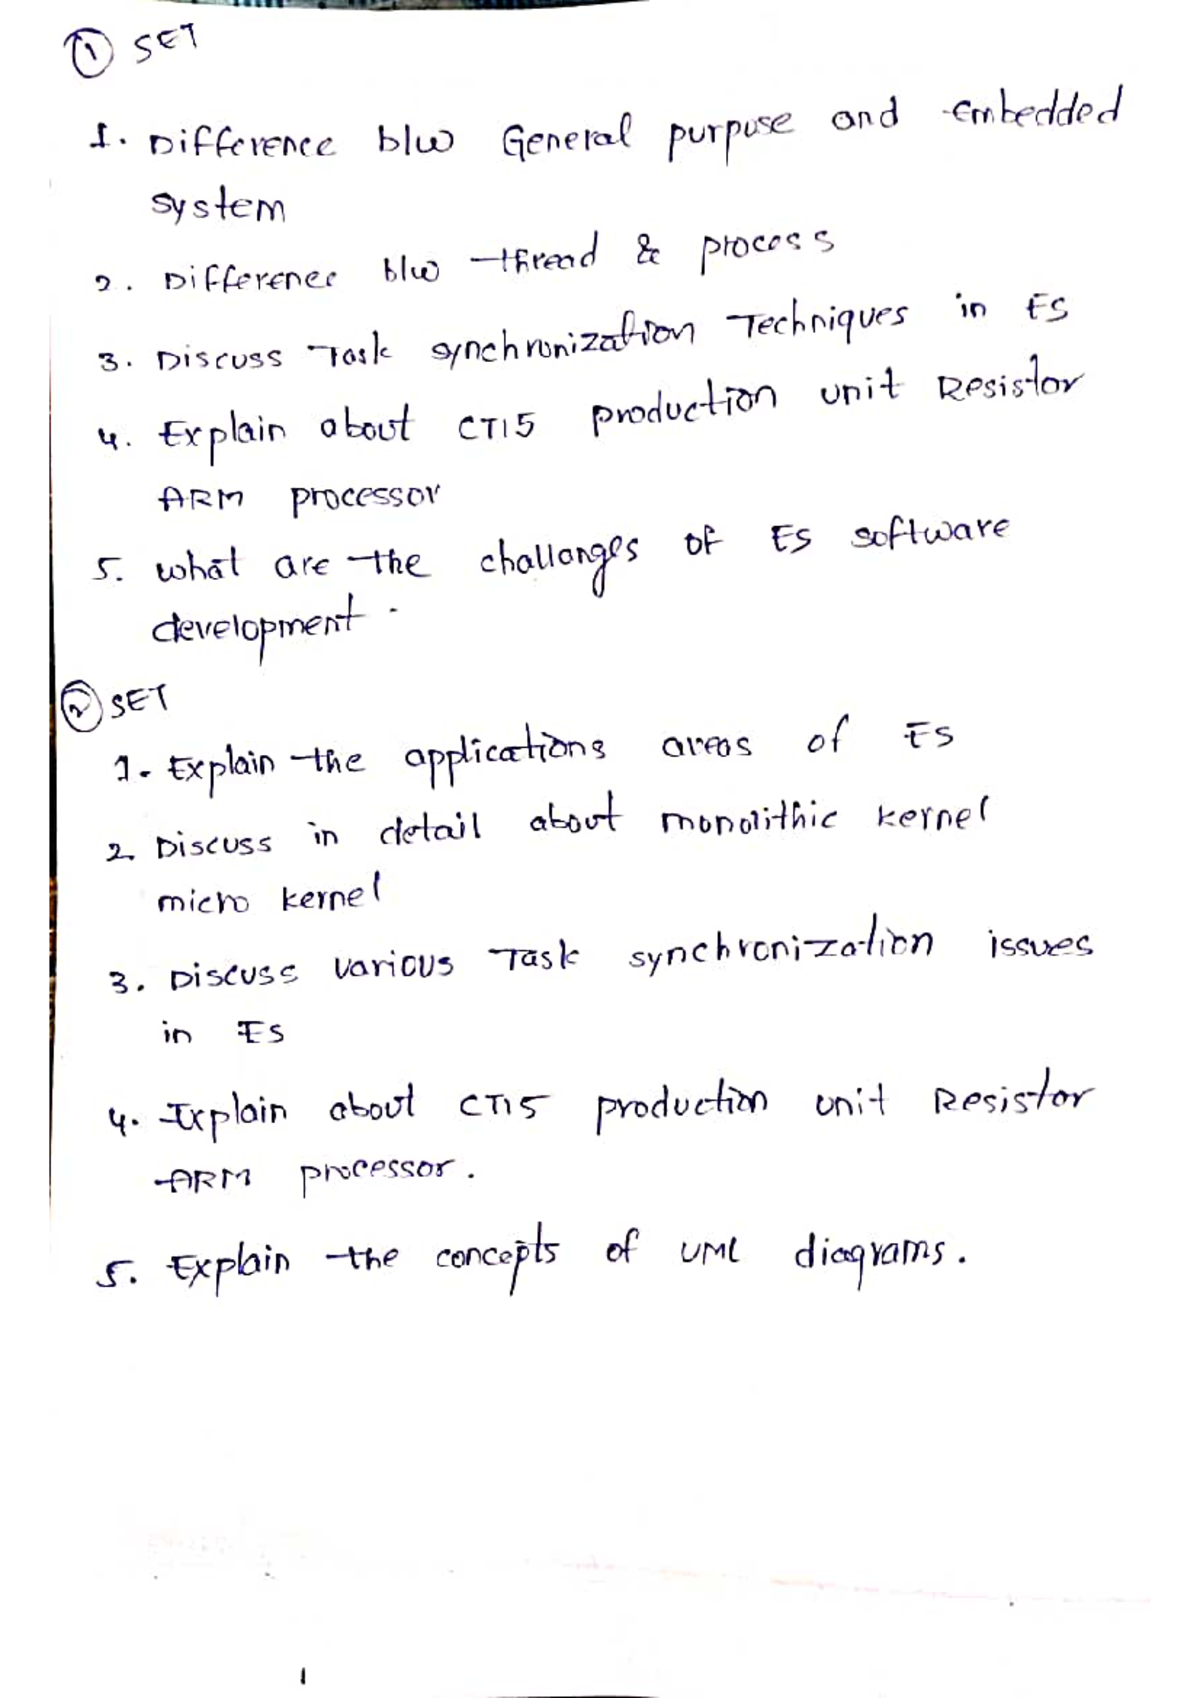 ① SET
1. Difference b/w General purpose and embedded
system
2. Difference b/w thread & process
3. Discuss Task synchronization Techniques in ES
4. Explain about CT15 production unit Resistor
ARM processor
5. what are the challanges of ES software
development.
② SET
1. Explain the applications areas of ES
2. Discuss in detail about monolithic kernel
micro kernel
3. Discuss various Task synchronization issues
in ES
4. Explain about CT15 production unit Resistor
ARM processor.
5. Explain the concepts of UML diagrams.